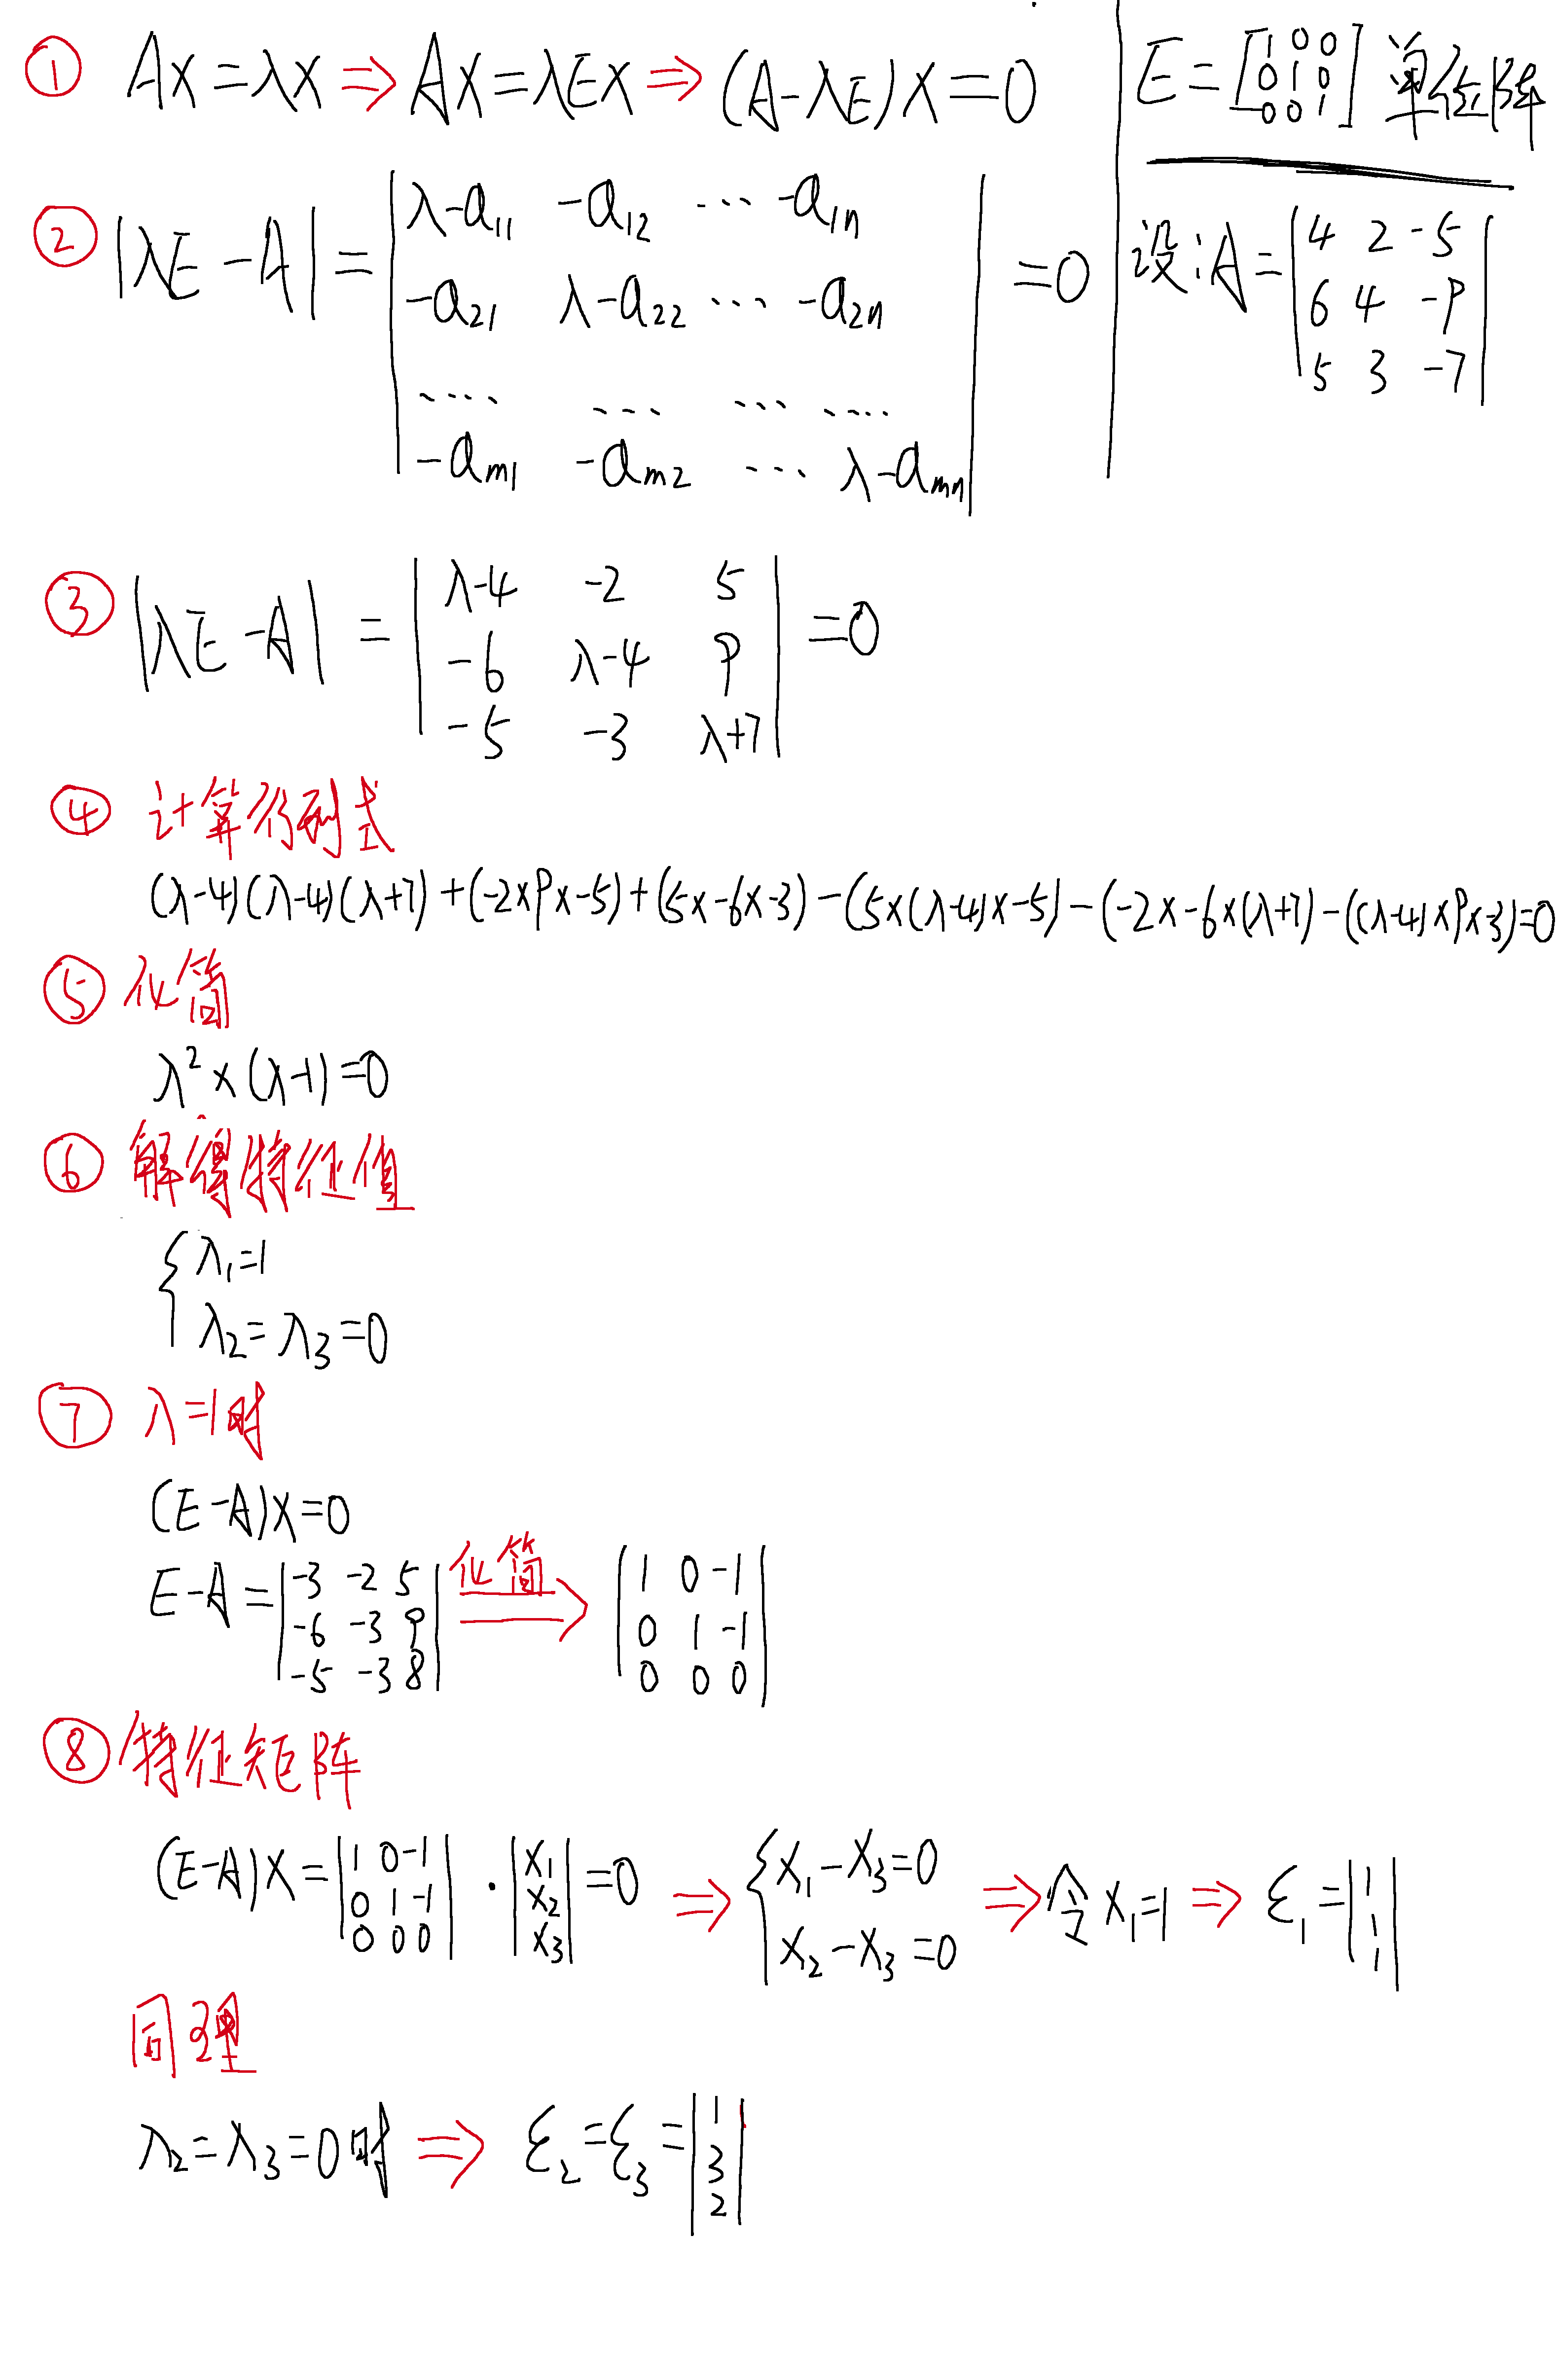 ① AX=λX ⇒ AX=λEX ⇒ (A-λE)X=0
E= [1 0 0
0 1 0
0 0 1] 单位阵
② |λE-A| = | λ-a₁₁ -a₁₂ … -a₁ₙ
-a₂₁ λ-a₂₂ … -a₂ₙ
…. … … ….
-aₘ₁ -aₘ₂ … λ-aₘₙ | =0
设:A= | 4 2 -5
6 4 -9
5 3 -7 |
③ |λE-A| = | λ-4 -2 5
-6 λ-4 9
-5 -3 λ+7 | =0
④ 计算行列式
(λ-4)(λ-4)(λ+7)+(-2×9×-5)+(5×-6×-3)-(5×(λ-4)×-5)-(-2×-6×(λ+7)-((λ-4)×9×-3)=0
⑤ 化简
λ²×(λ-1)=0
⑥ 解得特征值
{ λ₁=1
λ₂=λ₃=0
⑦ λ=1时
(E-A)X=0
E-A= | -3 -2 5
-6 -3 9
-5 -3 8 | 化简 ⇒ | 1 0 -1
0 1 -1
0 0 0 |
⑧ 特征矩阵
(E-A)X= | 1 0 -1
0 1 -1
0 0 0 | · | X₁
X₂
X₃ | =0 ⇒ { X₁-X₃=0
X₂-X₃=0 ⇒ 令X₁=1 ⇒ ξ₁= | 1
1
1 |
同理
λ₂=λ₃=0时 ⇒ ξ₂=ξ₃= | 1
3
2 |